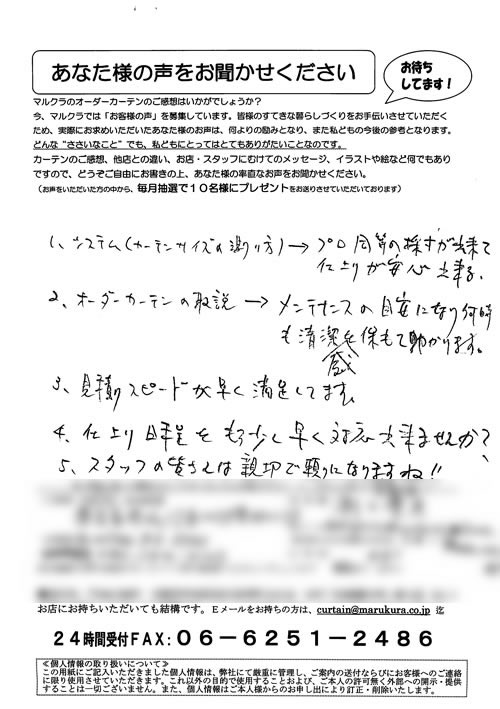 あなた様の声をお聞かせください
お待ち
してます！
マルクラのオーダーカーテンのご感想はいかがでしょうか？
今、マルクラでは「お客様の声」を募集しています。皆様のすてきな暮らしづくりをお手伝いさせていただく
ため、実際にお求めいただいたあなた様のお声は、何よりの励みとなり、また私どもの今後の参考となります。
どんな“ささいなこと”でも、私どもにとってはとてもありがたいことなのです。
カーテンのご感想、他店との違い、お店・スタッフにむけてのメッセージ、イラストや絵など何でもあり
ですので、どうぞご自由にお書きの上、あなた様の率直なお声をお聞かせください。
（お声をいただいた方の中から、毎月抽選で１０名様にプレゼントをお送りさせていただいております）
1、システム(カーテンサイズの測り方) → プロ同等の採寸が出来て
仕上りが安心出来る。
2、オーダーカーテンの取説 → メンテナンスの目安になり何時
も清潔感を保もて助かります。
3、見積りスピードが早く満足してます。
4、仕上り日程をもう少し早く対応出来ませんか？
5、スタッフの皆さんは親切で頼りになりますね!!
お店にお持ちいただいても結構です。Ｅメールをお持ちの方は、curtain@marukura.co.jp 迄
２４時間受付FAX：０６－６２５１－２４８６
≪個人情報の取り扱いについて≫
この用紙にご記入いただきました個人情報は、弊社にて厳重に管理し、ご案内の送付ならびにお客様へのご連絡
に限り使用させていただきます。これ以外の目的で使用することおよび、ご本人の許可無く外部への開示・提供
することは一切ございません。また、個人情報はご本人様からのお申し出により訂正・削除いたします。